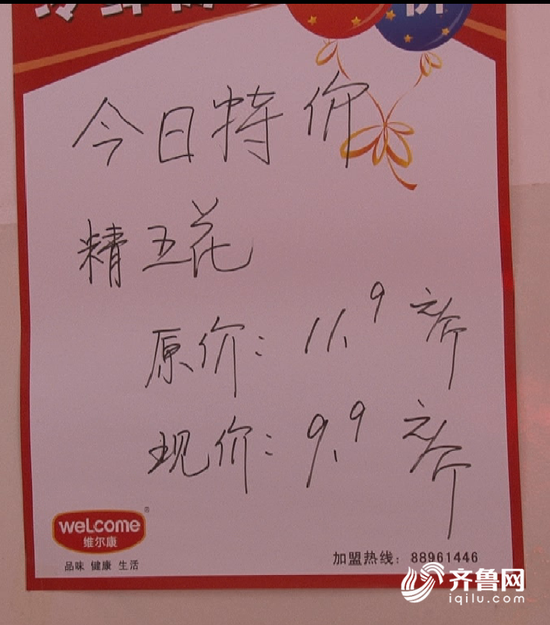 今日特价
精五花
原价：11.9元/斤
现价：9.9元/斤
welcome
®
维尔康
品味 健康 生活
加盟热线：88961446
齐鲁网
iqilu.com